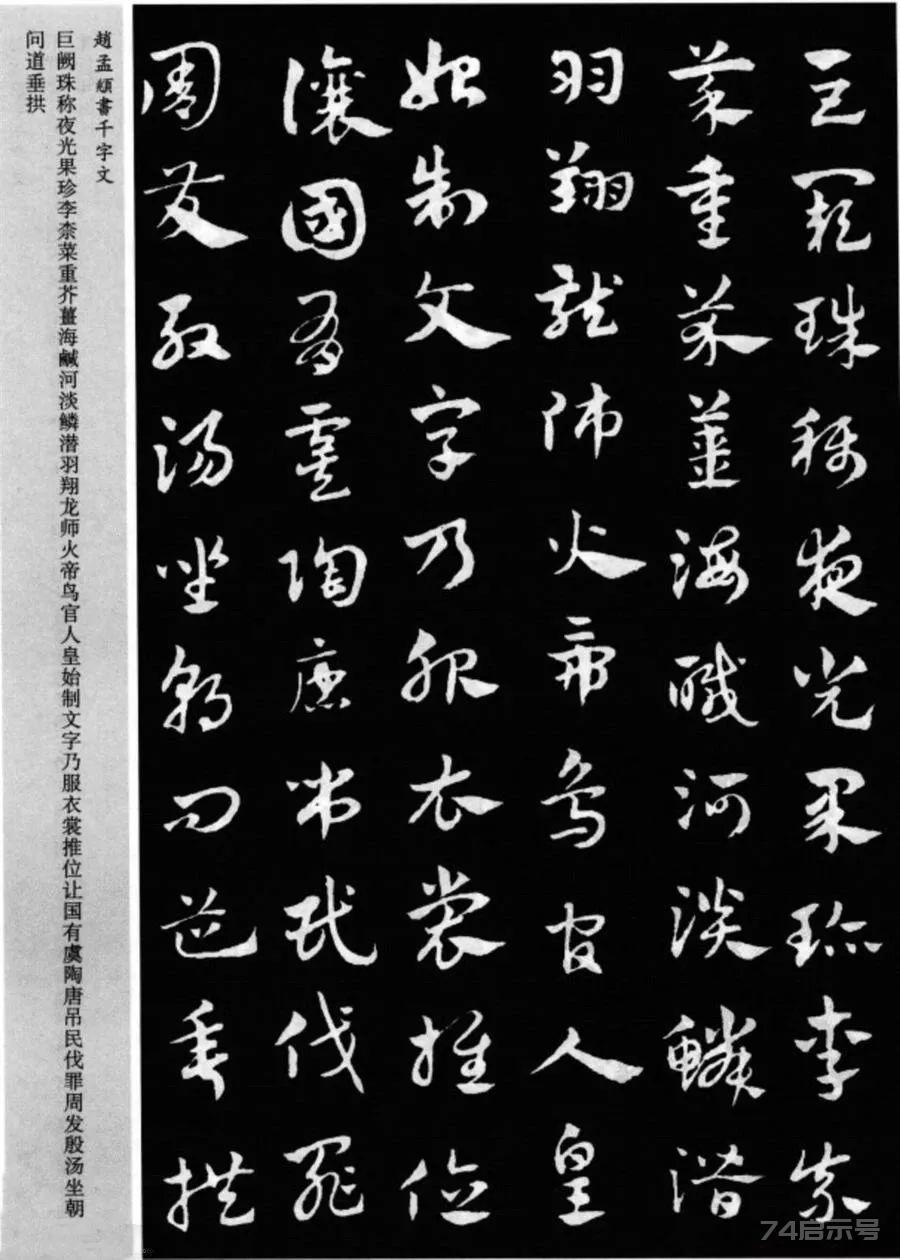 巨闕珠稱夜光果珍李柰
菜重芥薑海鹹河淡鱗潛
羽翔龍師火帝鳥官人皇
始制文字乃服衣裳推位
讓國有虞陶唐弔民伐罪
周發殷湯坐朝問道垂拱
趙孟頫書千字文
巨阙珠称夜光果珍李柰菜重芥薑海鹹河淡鳞潜羽翔龙师火帝鸟官人皇始制文字乃服衣裳推位让国有虞陶唐吊民伐罪周发殷汤坐朝
问道垂拱
74启示号